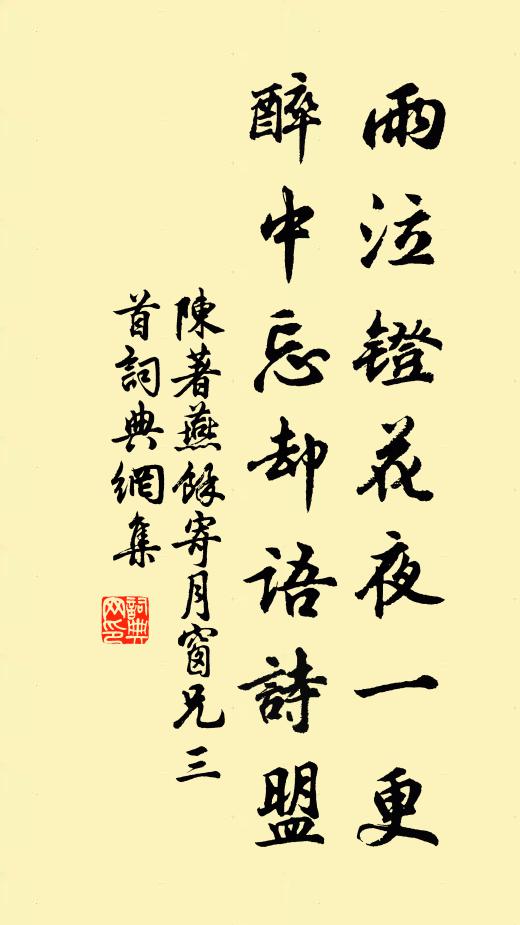 雨泣鐙花夜一更
醉中忘却語詩盟
陳著燕餘寄月窗兄三
首詞典網集
詞典
网印